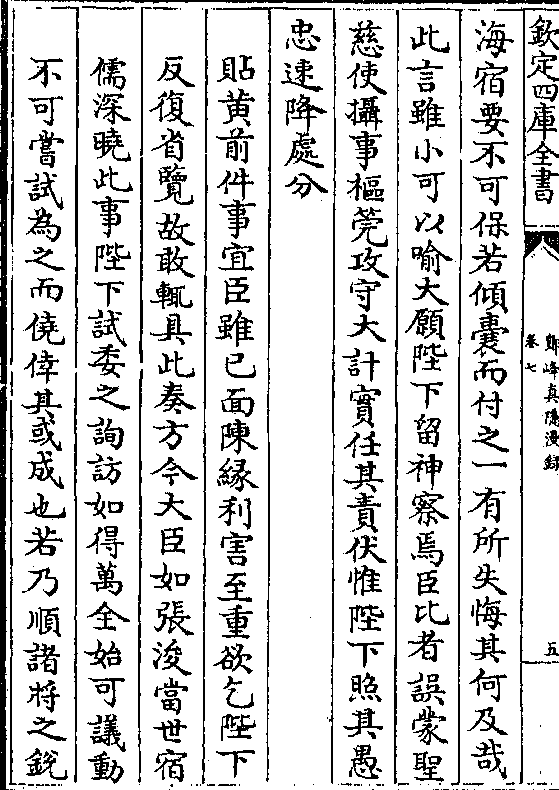 欽定四庫全書
鄮峰真隱漫録
卷七
五
海宿要不可保若傾囊而付之一有所失悔其何及哉
此言雖小可以喻大願陛下留神察焉臣比者誤蒙聖
慈使攝事樞筦攻守大計實任其責伏惟陛下照其愚
忠速降處分
貼黄前件事宜臣雖已面陳縁利害至重欲乞陛下
反復省覽故敢輒具此奏方今大臣如張浚當世宿
儒深曉此事陛下試委之詢訪如得萬全始可議動
不可嘗試為之而僥倖其或成也若乃順諸将之銳